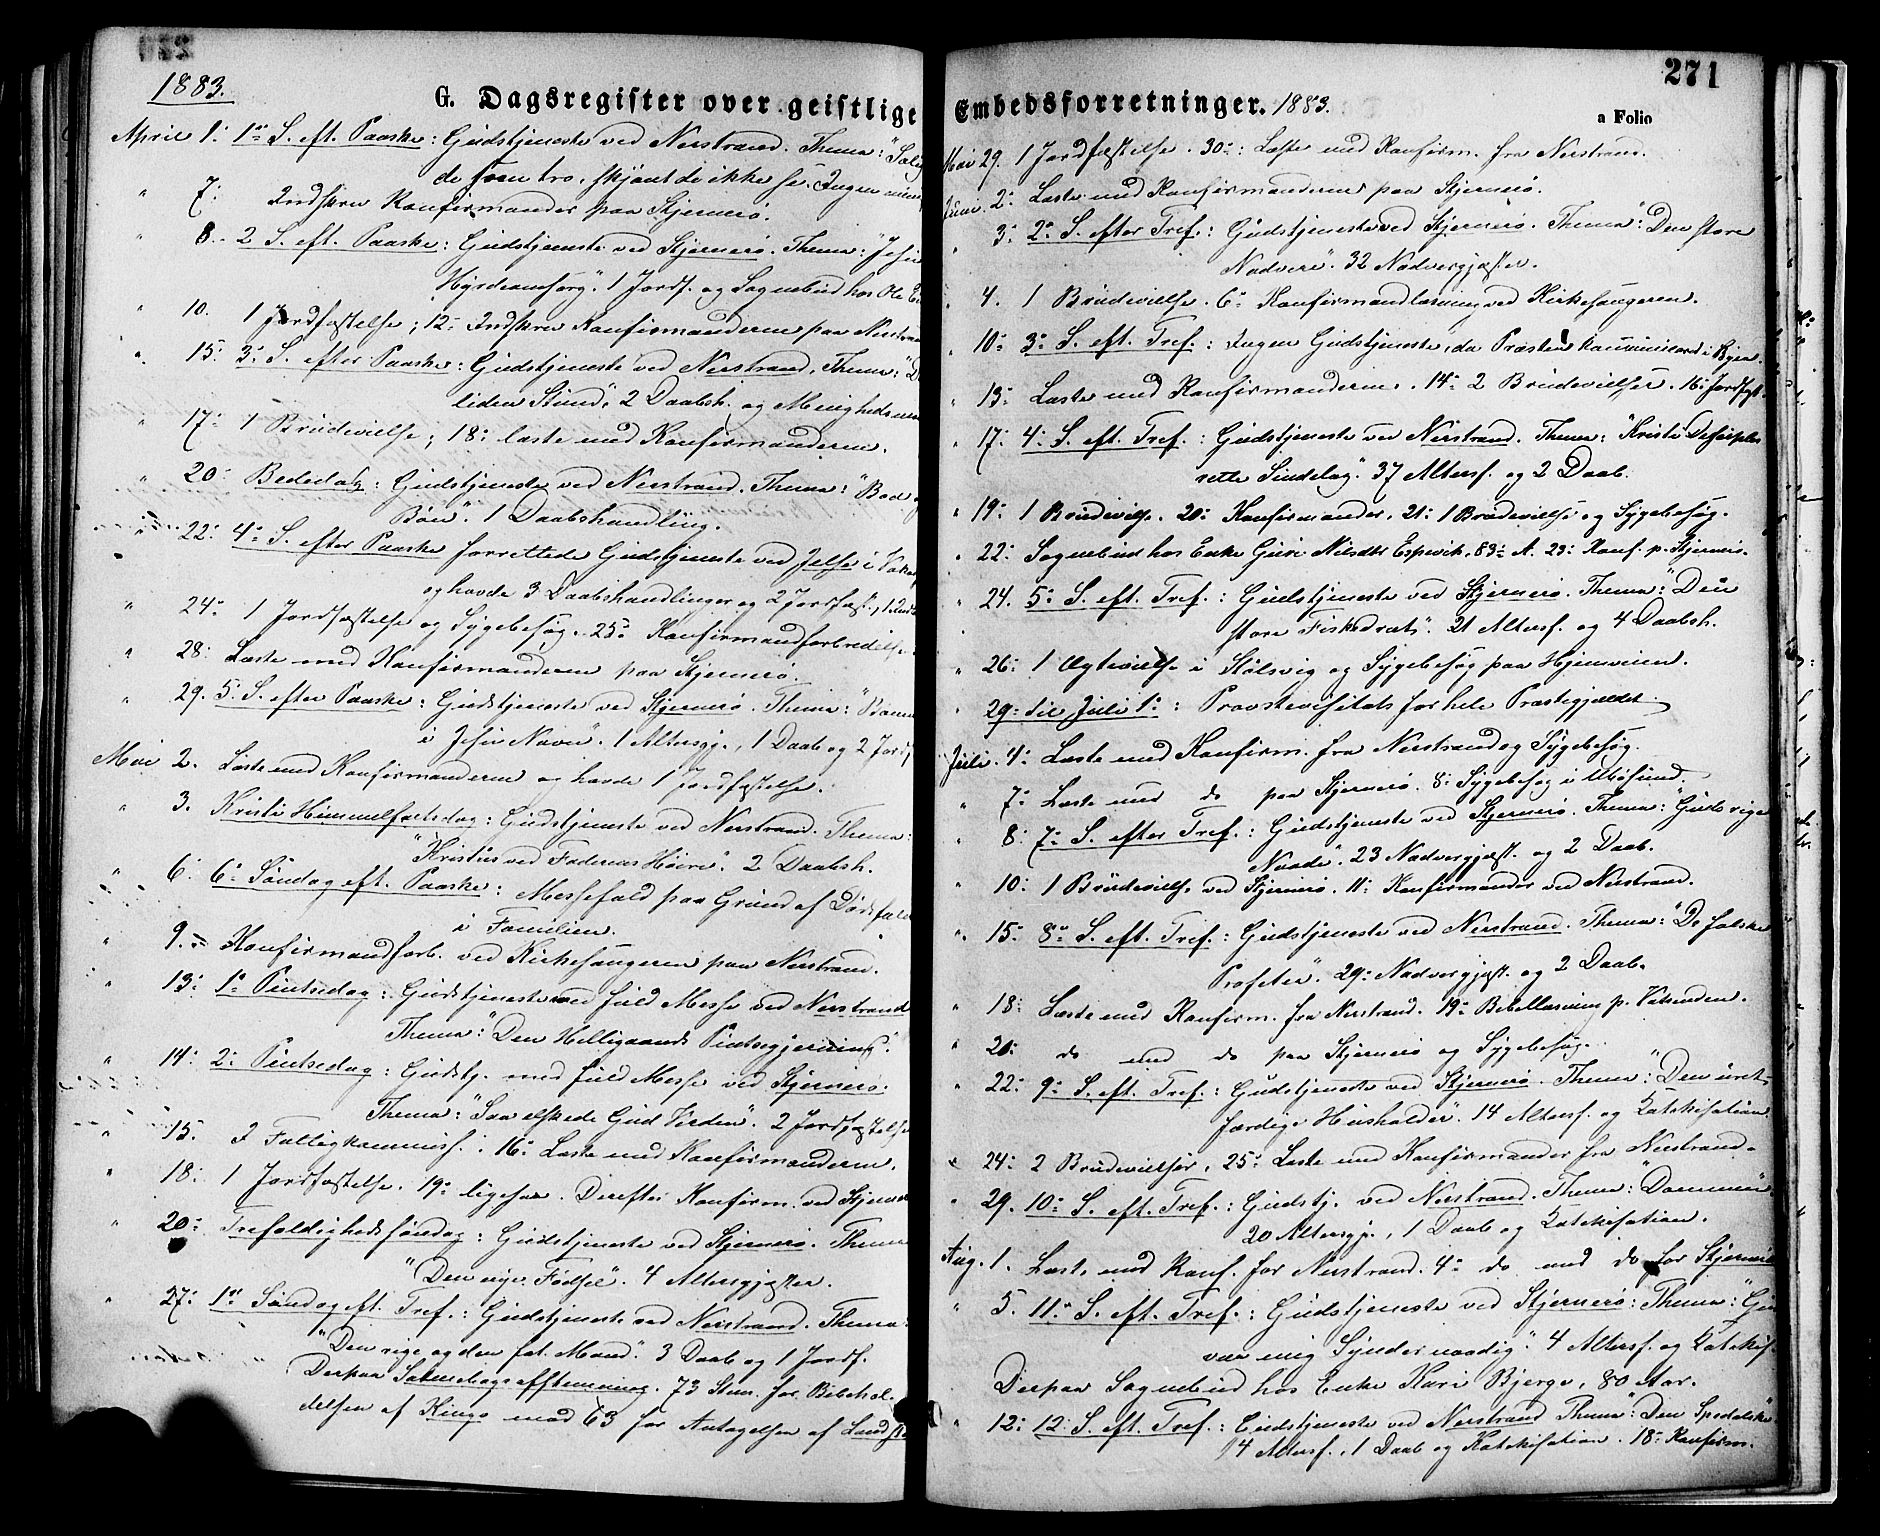 1883.
G. Dagsregister over geistlige
April 1: 1ste S. eft. Paaske: Gudstjeneste ved Nerstrand. Thema: "Salig
de som tro, skjønt de ikke se. Ingen
" 7: Indskrev Konfirmander paa Stjernerø.
" 8. 2 S. eft. Paaske: Gudstjeneste ved Stjernerø. Thema: "Jesu
Hyrdeomsorg". 1 Jordf. og Sognebud hos Ole
" 10. 1 Jordfæstelse; 12: Indskrev Konfirmanderne paa Nerstrand
" 15: 3: S. efter Paaske: Gudstjeneste ved Nerstrand. Thema: "
liden Stund", 2 Daabsh. og Menighedsmøde
" 17: 1 Brudevielse; 18: læste med Konfirmanderne.
" 20: Bededag: Gudstjeneste ved Nerstrand. Thema: "Bod og
Bøn". 1 Daabshandling.
" 22: 4: S. efter Paaske forrettede Gudstjeneste ved Jelse i
og havde 3 Daabshandlinger og 2 Jordfæst., 1
" 24: 1 Jordfæstelse og Sygebesøg. 25: Konfirmandforberedelse
" 28: Læste med Konfirmanderne paa Stjernerø.
" 29. 5. S. efter Paaske: Gudstjeneste ved Stjernerø. Thema: "Bønnen
i Jesu Navn". 1 Altersgj., 1 Daab og 2 Jordf
Mai 2. Læste med Konfirmanderne og havde 1 Jordfæstelse.
" 3. Kristi Himmelfartsdag: Gudstjeneste ved Nerstrand. Thema:
"Kristus ved Faderens Høire". 2 Daabsh.
" 6: 6: Søndag eft. Paaske: Messefald paa Grund af Dødsfald
i Familien.
" 9. Konfirmandforb. ved Kirkesangeren paa Nerstrand.
" 13: 1: Pintsedag: Gudstjeneste med fuld Messe ved Nerstrand
Thema: "Den Helligaands Pintsegjerning".
" 14: 2: Pintsedag: Gudstj. med fuld Messe ved Stjernerø.
Thema: "Saa elskede Gud Verden". 2 Jordfæstelse
" 15. Fattigkommiss. 16: Læste med Konfirmanderne.
" 18: 1 Jordfæstelse. 19: ligesaa. Derefter Konfirm. ved Stjernerø
" 20: Trefoldighedssøndag: Gudstjeneste ved Stjernerø. Thema
"Den nye Fødsel". 4 Altersgjæster.
" 27: 1ste Søndag eft. Tref.: Gudstjeneste ved Nerstrand. Thema:
"Den rige og den fat. Mand". 3 Daab og 1 Jordf.
Derpaa Salmebogsafstemning. 73 Stem. for Bibehol-
delsen af Kingo mod 63 for Antagelsen af Landst
271
Embedsforretninger. 1883.
a Folio
Mai 29. 1 Jordfæstelse. 30: Læste med Konfirm. fra Nerstrand.
Juni. 2: Læste med Konfirmanderne paa Stjernerø.
" 3: 2: S. efter Tref.: Gudstjeneste ved Stjernerø. Thema: "Den store
Nadvere". 32 Nadvergjæster.
" 4. 1 Brudevielse. 6: Konfirmandlæsning ved Kirkesangeren.
" 10: 3: S. eft. Tref.: Ingen Gudstjeneste, da Præsten i Byen.
" 13: Læste med Konfirmanderne. 14: 2 Brudevielser. 16: Jordfæst.
" 17: 4: S. eft. Tref.: Gudstjeneste ved Nerstrand. Thema: "Kristi Disciples
rette Sindelag" 37 Altersf. og 2 Daab.
" 19: 1 Brudevielse. 20: Konfirmander. 21: 1 Brudevielse og Sygebesøg.
" 22: Sognebud hos Enke Guri Nilsdtr Espevik, 83: A. 23: Konf. p. Stjernerø.
" 24. 5: S. eft. Tref.: Gudstjeneste ved Stjernerø. Thema: "Den
store Fiskedræt". 21 Altersf. og 4 Daabsh.
" 26: 1 Ægtevielse i Stølsvig og Sygebesøg paa Hjemveien.
" 29: til Juli 1: Provstevisitats for hele Præstegjældet.
Juli. 4: Læste med Konfirm. fra Nerstrand og Sygebesøg.
" 7: Læste med do paa Stjernerø. 8: Sygebesøg i Ubøsund.
" 8: 7: S. efter Tref.: Gudstjeneste ved Stjernerø. Thema: "Guds rige
Naade". 23 Nadvergjæst. og 2 Daab.
" 10: 1 Brudevielse ved Stjernerø. 11: Konfirmander ved Nerstrand.
" 15: 8: S. eft. Tref.: Gudstjeneste ved Nerstrand. Thema: "De falske
Profeter". 29: Nadvergjæst. og 2 Daab.
" 18: Læste med Konfirm. fra Nerstrand. 19: Bibellæsning p.
" 21: do med do paa Stjernerø og Sygebesøg.
" 22: 9: S. eft. Tref.: Gudstjeneste ved Stjernerø. Thema: "Den uret-
færdige Husholder". 14 Altersf. og Katekisation.
" 24: 2 Brudevielser, 25: Læste med Konfirmander fra Nerstrand.
" 29. 10: S. eft. Tref.: Gudstj. ved Nerstrand. Thema: "Dommen"
20 Altersgj., 1 Daab og Katekisation.
Aug. 1. Læste med Konf. for Nerstrand. 4: do med do for Stjernerø
" 5. 11: S. eft. Tref.: Gudstjeneste ved Stjernerø: Thema: "Gud
vær mig Synder naadig". 4 Altersf. og Katekis.
Derpaa Sognebud hos Enke Kari Bjerge, 80 Aar.
" 12: 12: S. eft. Tref.: Gudstjeneste ved Nerstrand Thema: "Den Spedalske"
14 Altersf., 1 Daab og Katekisation. 18: Konfirm.